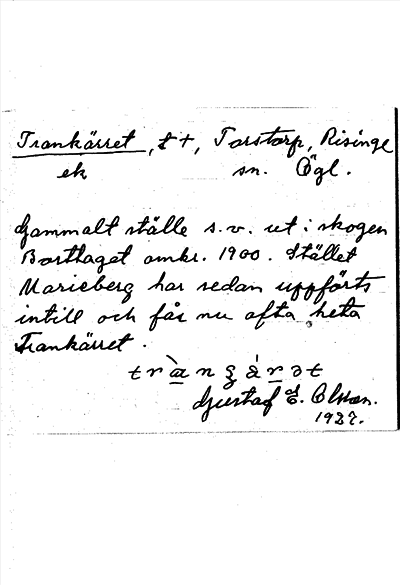 Trankärret, t +, Torstorp, Risinge
ek sn. Ögl.
Gammalt ställe s.v. ut i skogen
Borttaget omkr. 1900. Stället
Marieberg har sedan uppförts
intill och får nu ofta heta
Trankärret.
Gustaf Olsson.
1927.